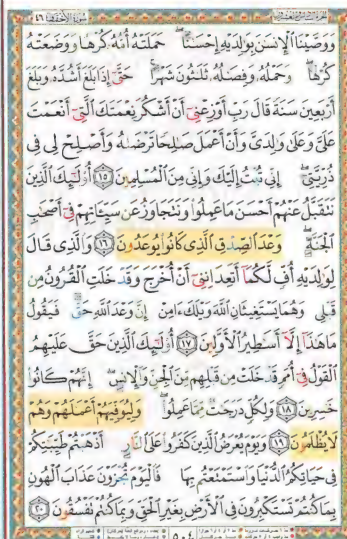 الجزء السادس والعشرون سورة الأحقاف ٤٦
وَوَصَّيْنَا الْإِنسَٰنَ بِوَٰلِدَيْهِ إِحْسَٰنًا حَمَلَتْهُ أُمُّهُ كُرْهًا وَوَضَعَتْهُ
كُرْهًا وَحَمْلُهُ وَفِصَٰلُهُ ثَلَٰثُونَ شَهْرًا حَتَّىٰ إِذَا بَلَغَ أَشُدَّهُ وَبَلَغَ
أَرْبَعِينَ سَنَةً قَالَ رَبِّ أَوْزِعْنِي أَنْ أَشْكُرَ نِعْمَتَكَ الَّتِي أَنْعَمْتَ
عَلَيَّ وَعَلَىٰ وَٰلِدَيَّ وَأَنْ أَعْمَلَ صَٰلِحًا تَرْضَىٰهُ وَأَصْلِحْ لِي فِي
ذُرِّيَّتِي إِنِّي تُبْتُ إِلَيْكَ وَإِنِّي مِنَ الْمُسْلِمِينَ ١٥ أُولَٰئِكَ الَّذِينَ
نَتَقَبَّلُ عَنْهُمْ أَحْسَنَ مَا عَمِلُوا وَنَتَجَاوَزُ عَن سَيِّئَاتِهِمْ فِي أَصْحَٰبِ
الْجَنَّةِ وَعْدَ الصِّدْقِ الَّذِي كَانُوا يُوعَدُونَ ١٦ وَالَّذِي قَالَ
لِوَٰلِدَيْهِ أُفٍّ لَّكُمَا أَتَعِدَانِنِي أَنْ أُخْرَجَ وَقَدْ خَلَتِ الْقُرُونُ مِن
قَبْلِي وَهُمَا يَسْتَغِيثَانِ اللَّهَ وَيْلَكَ ءَامِنْ إِنَّ وَعْدَ اللَّهِ حَقٌّ فَيَقُولُ
مَا هَٰذَا إِلَّا أَسَٰطِيرُ الْأَوَّلِينَ ١٧ أُولَٰئِكَ الَّذِينَ حَقَّ عَلَيْهِمُ
الْقَوْلُ فِي أُمَمٍ قَدْ خَلَتْ مِن قَبْلِهِم مِّنَ الْجِنِّ وَالْإِنسِ إِنَّهُمْ كَانُوا
خَٰسِرِينَ ١٨ وَلِكُلٍّ دَرَجَٰتٌ مِّمَّا عَمِلُوا وَلِيُوَفِّيَهُمْ أَعْمَٰلَهُمْ وَهُمْ
لَا يُظْلَمُونَ ١٩ وَيَوْمَ يُعْرَضُ الَّذِينَ كَفَرُوا عَلَى النَّارِ أَذْهَبْتُمْ طَيِّبَٰتِكُمْ
فِي حَيَاتِكُمُ الدُّنْيَا وَاسْتَمْتَعْتُم بِهَا فَالْيَوْمَ تُجْزَوْنَ عَذَابَ الْهُونِ
بِمَا كُنتُمْ تَسْتَكْبِرُونَ فِي الْأَرْضِ بِغَيْرِ الْحَقِّ وَبِمَا كُنتُمْ تَفْسُقُونَ ٢٠
٥٠٤